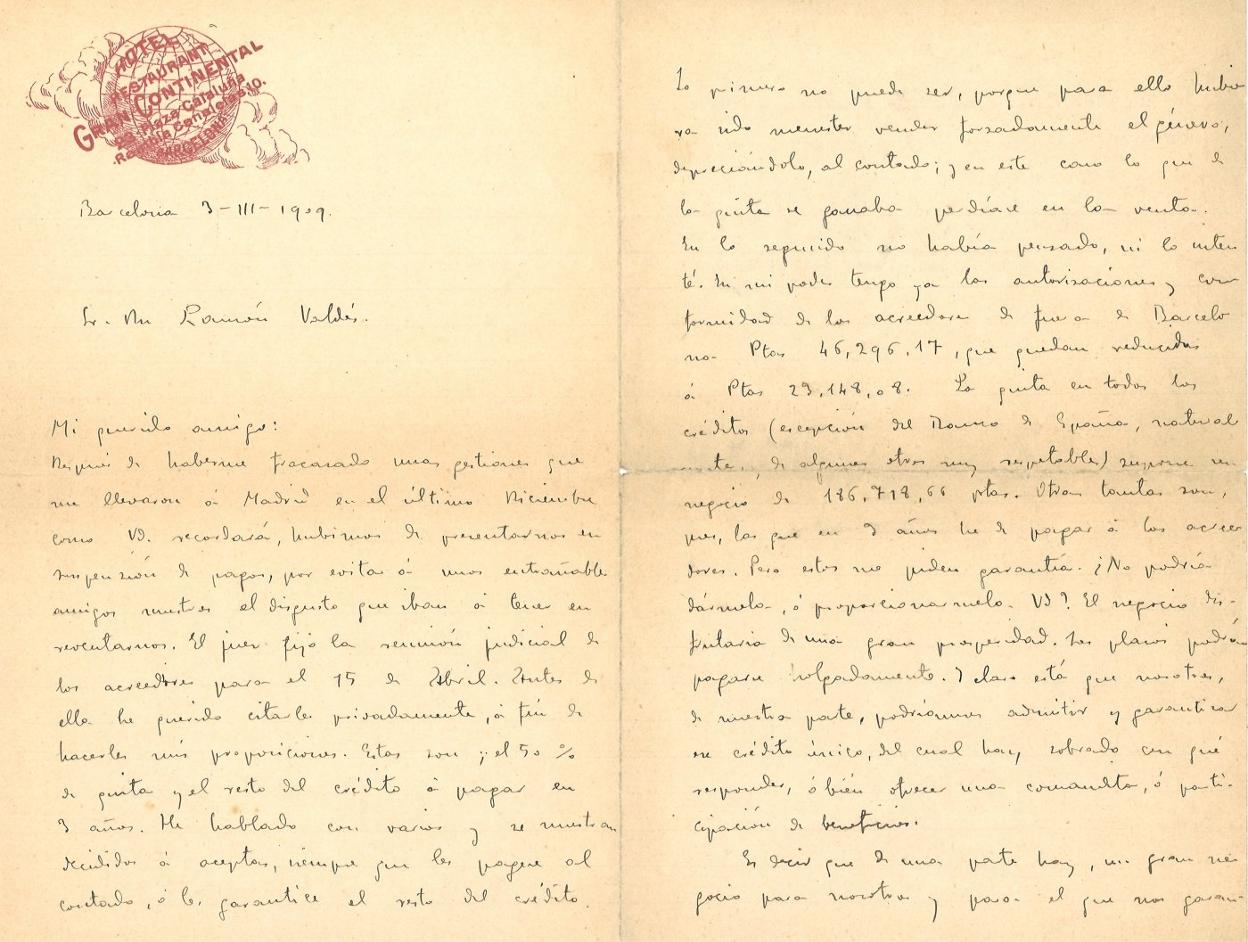 HOTEL
RESTAURANT
GRAN CONTINENTAL
Plaza Cataluña
Rambla Canaletas 10.
BARCELONA
Barcelona 3-III-1909.
Sr. Dn Ramón Valdés.
Mi querido amigo:
Después de haberme fracasado unas gestiones que
me llevaron á Madrid en el último Diciembre
como Vd. recordará, hubimos de presentarnos en
suspensión de pagos, por evitar á unos entrañables
amigos nuestros el disgusto que iban á tener en
reventarnos. El juez fijó la reunión judicial de
los acreedores para el 15 de Abril. Antes de
ella he querido citarles privadamente, á fin de
hacerles mis proposiciones. Estas son ¡¡el 50 %
de quita y el resto del crédito á pagar en
3 años. He hablado con varios y se muestran
decididos á aceptar, siempre que les pague al
contado, ó les garantice el resto del crédito.
Lo primero no puede ser, porque para ello hubie
ra sido menester vender forzadamente el género,
depreciándolo, al contado; y en este caso lo que de
la quita se ganaba perdíase en la venta.
En lo segundo no había pensado, ni lo inten
té. En mi poder tengo ya las autorizaciones y con
formidad de los acreedores de fuera de Barcelo
na Ptas 46,296,17, que quedan reducidas
á Ptas 23,148,08. La quita en todos los
créditos (escepción del Banco de España, natural
mente, de algunos otros muy respetables) supone un
negocio de 186,718,66 ptas. Otras tantas son,
pues, las que en 3 años he de pagar á los acree
dores. Pero estos me piden garantía. ¿No podría
dármela, ó proporcionarmela Vd? El negocio dis-
frutaria de una gran prosperidad. Los plazos podrían
pagarse holgadamente. Y claro está que nosotros,
de nuestra parte, podríamos admitir y garantizar
ese crédito único, del cual hay sobrado con qué
responder, ó bién ofrecer una comandita, ó parti-
cipación de beneficios.
Es decir que de una parte hay un gran ne
gocio para nosotros y para el que nos garan-